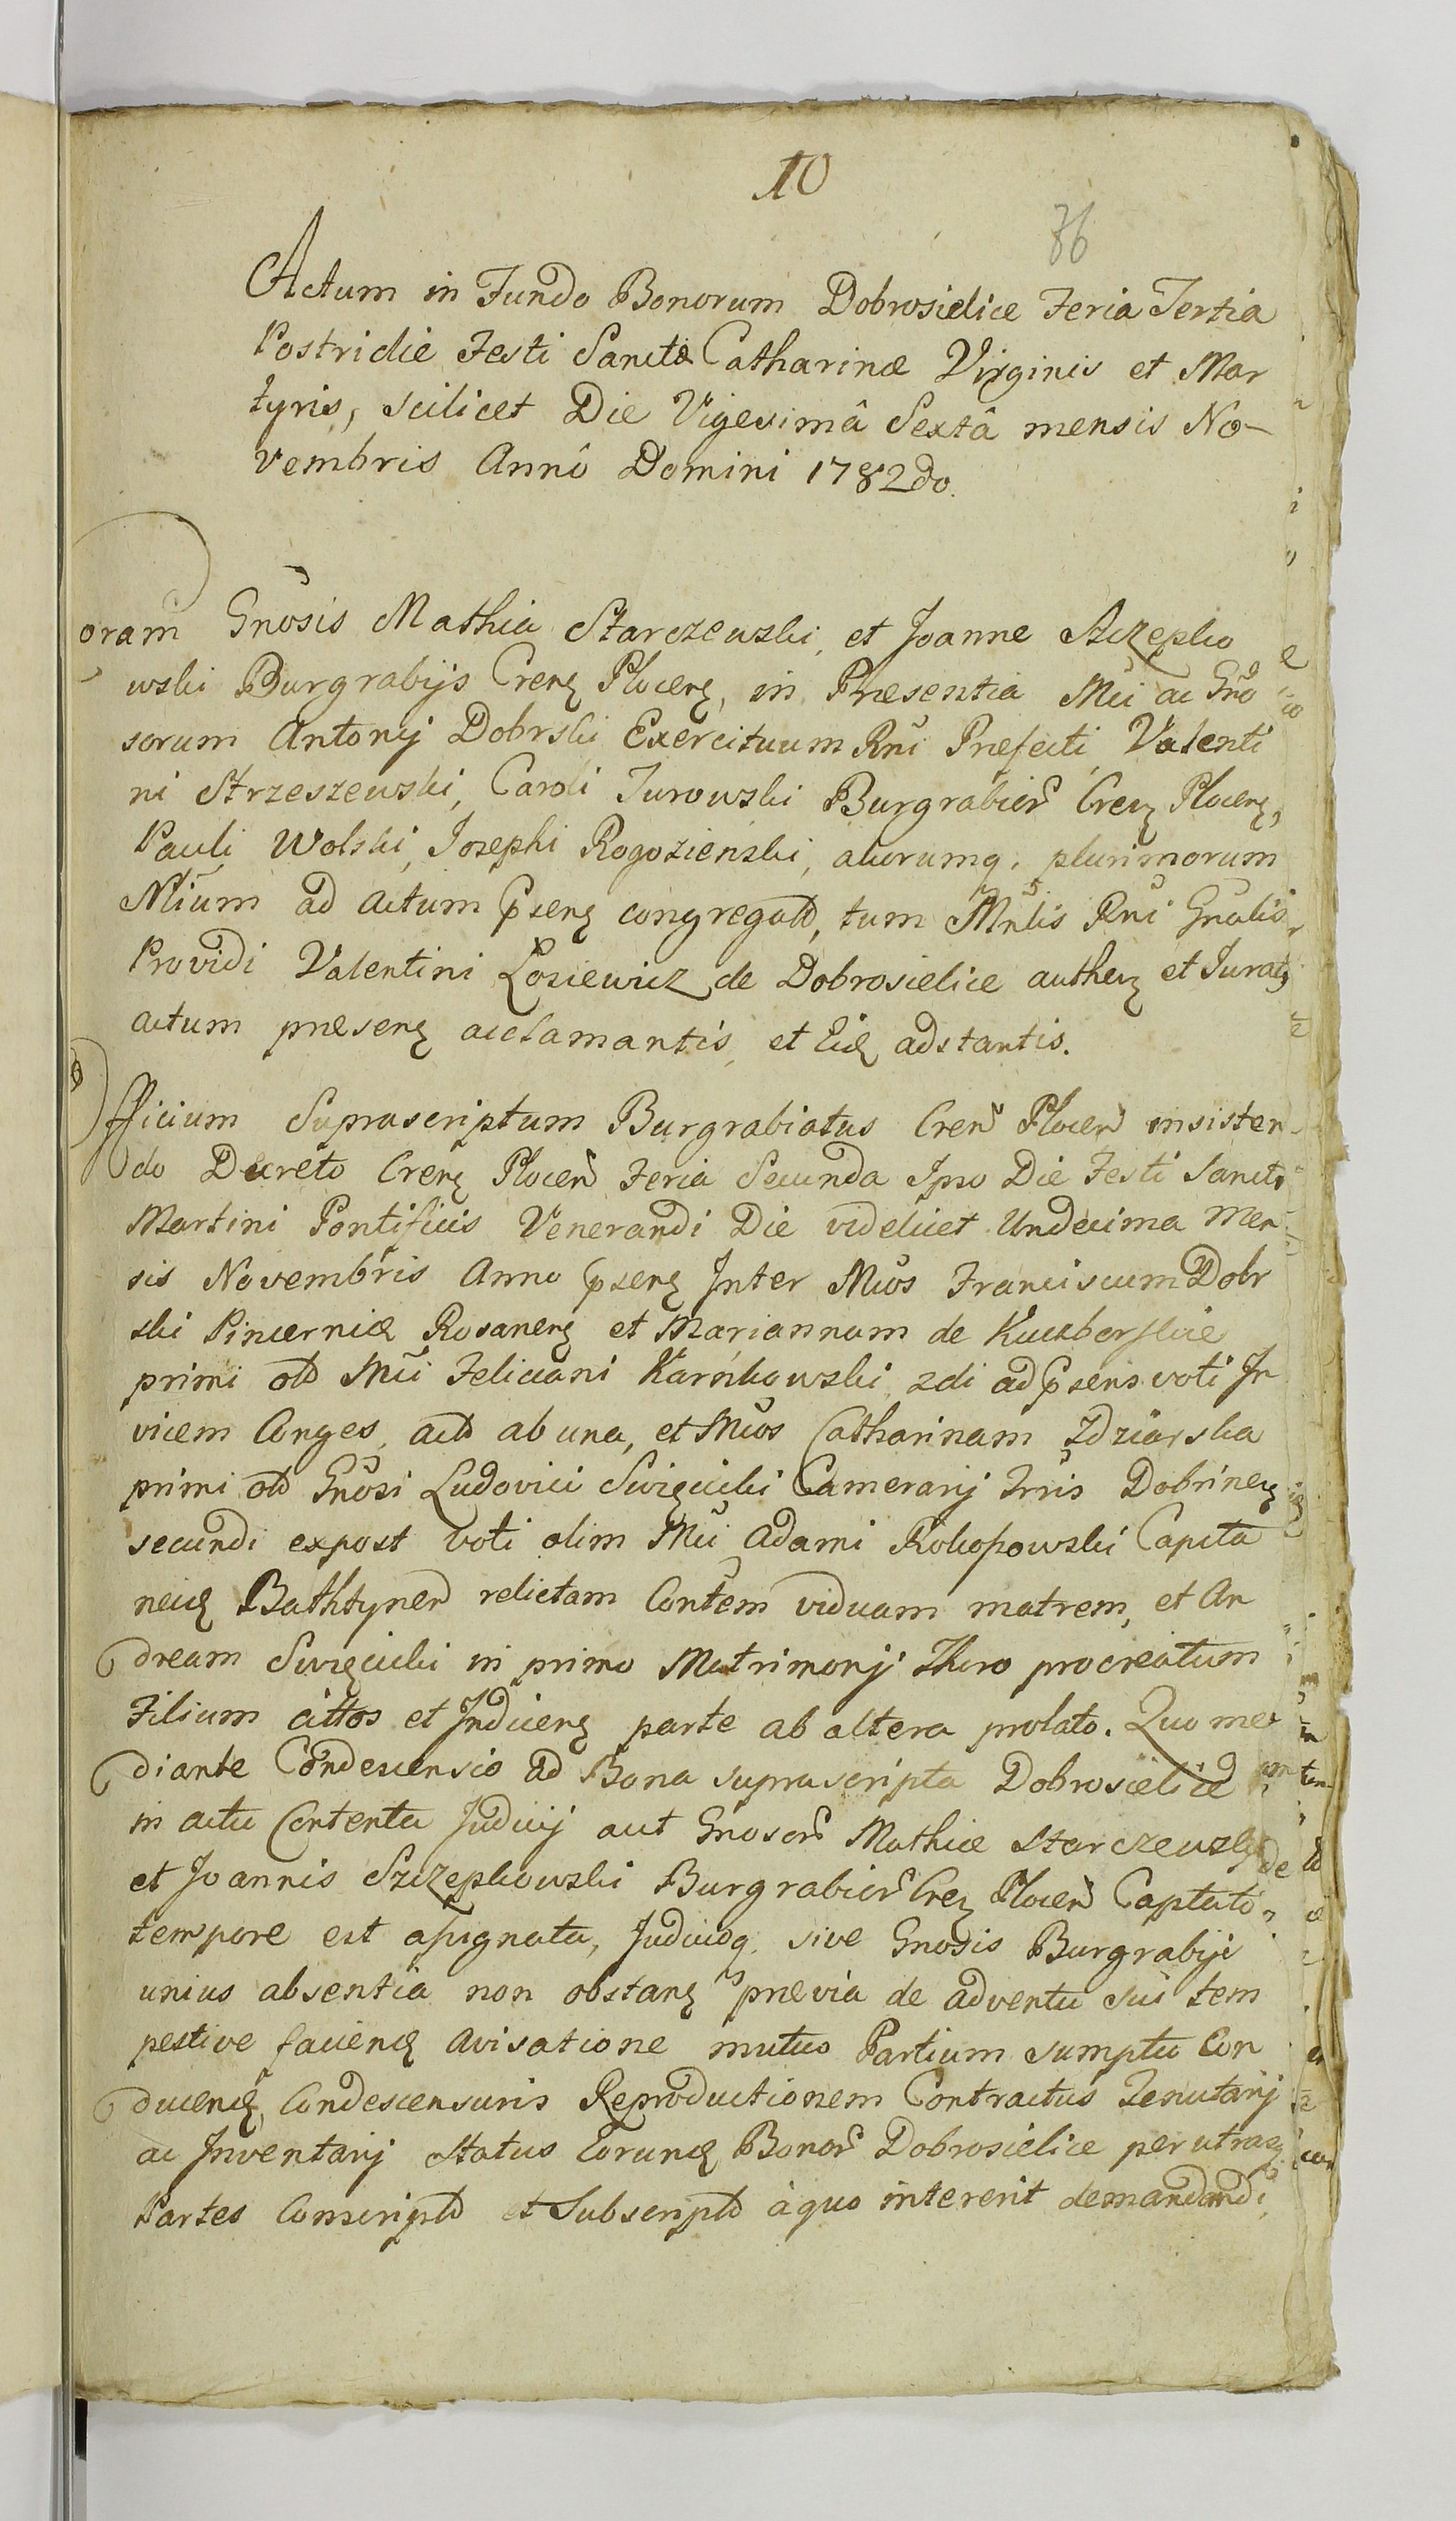 10
36
Actum in Fundo Bonorum Dobrosielice Feria Tertia
Postridie Festi Sanctæ Catharinæ Virginis et Mar
tyris, scilicet Die Vigesimâ Sextâ mensis No-
vembris Annô Domini 1782do.
Coram Gnosis Mathia Starczewski, et Joanne Szczepko
wski Burgrabijs Cren Plocen, in Præsentia Mci ac Gno
sorum Antonij Dobrski Exercituum Rni Præfecti, Valenti
ni Strzeszewski, Caroli Jurowski Burgrabior Cren Plocen,
Pauli Wolski, Josephi Rogozienski, aliorumq. plurimorum
Nlium ad actum psen congregato, tum Mnlis Rni Gnalis
Providi Valentini Łosiewicz de Dobrosielice authen et Jurat
actum præsen acclamantis, et Eid adstantis.
Officium Suprascriptum Burgrabiatus Cren Plocen insisten-
do Decreto Cren Plocen Feria Secunda Ipso Die Festi Sancti
Martini Pontificis Venerandi Die videlicet Undecima Men
sis Novembris Anno psen Inter Mcos Franciscum Dobr
ski Pincernia Rosanen et Mariannam de Kuczborskie
primi oto Mci Feliciani Karnkowski 2di ad psens voti In
vicem Conges, acto ab una, et Mcos Catharinam Zdziarska
primi oto Gnosi Ludovici Swięcicki Camerarij Trris Dobrinen
secundi expost voti olim Mci Adami Rokopowski Capita
nei Bathtynen relictam Contem viduam matrem, et An
dream Swięcicki in primo Matrimonij Thoro procreatum
Filium cittos et Inducen parte ab altera prolato. Quo me
diante Condescensio ad Bona suprascripta Dobrosielice
in actu Contenta Judicij aut Gnosor Mathiæ Starczewski
et Joannis Szczepkowski Burgrabior Cren Plocen Captato
tempore est assignata, Judicioq. sive Gnosis Burgrabije
unius absentia non obstan prævia de adventu sui tem
pestive facien avisatione mutuo Partium sumptu Con
ducen, Condescensuris Reproductionem Contractus Tenutarij
ac Inventarij Status Eorund Bonor Dobrosielice per utrasq
Partes Conscripto et Subscripto à quo intererit demandandi,